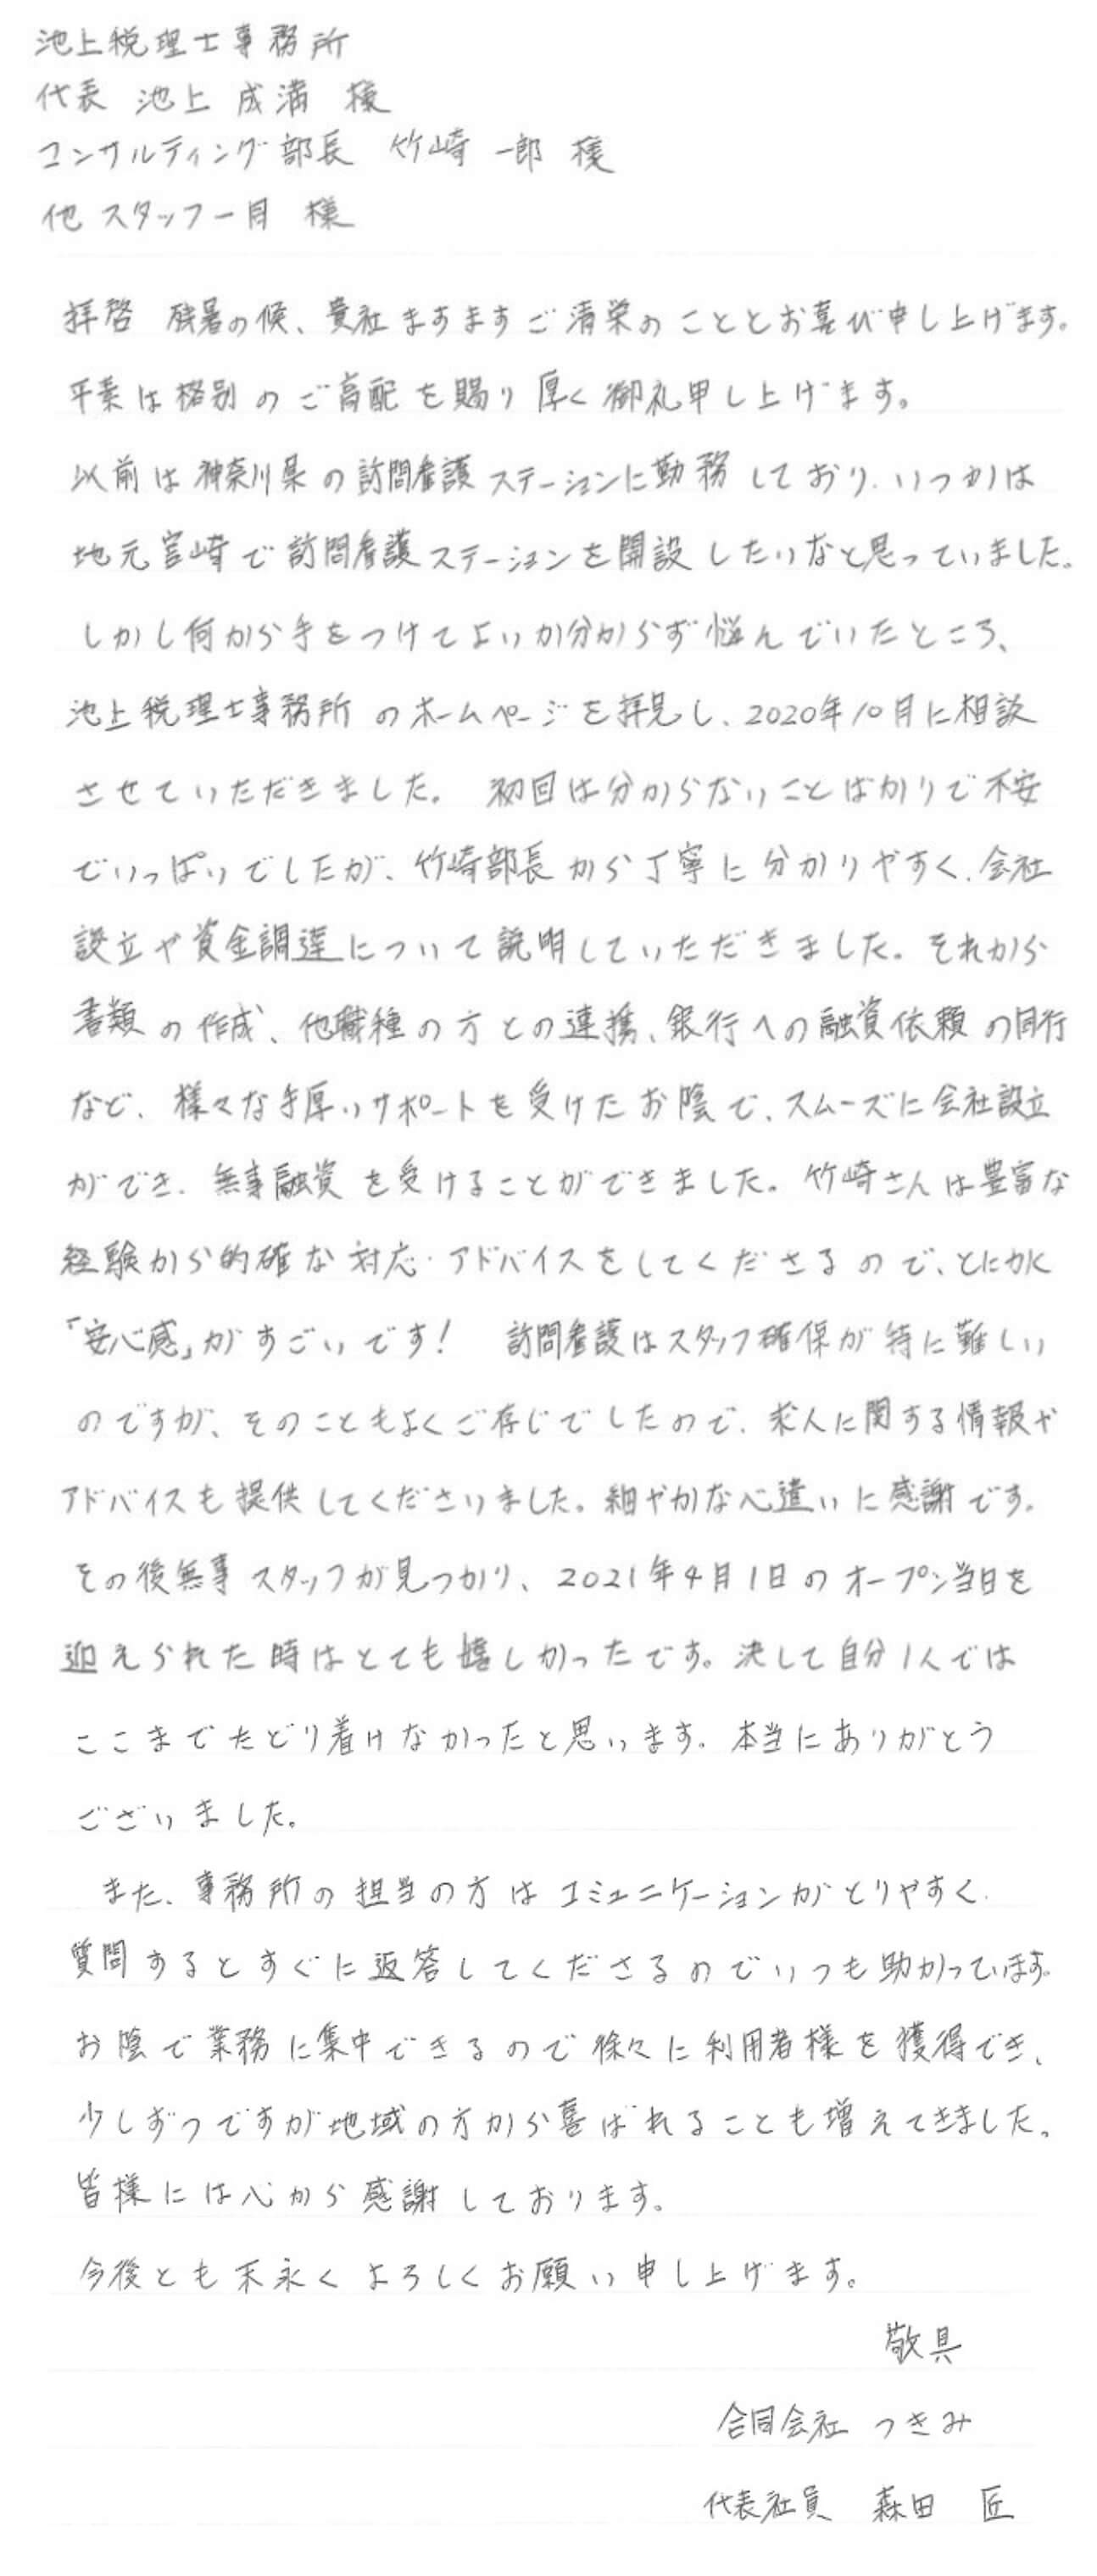 池上税理士事務所
代表 池上 成満 様
コンサルティング部長 竹崎 一郎 様
他 スタッフ一同 様
拝啓 残暑の候、貴社ますますご清栄のこととお喜び申し上げます。
平素は格別のご高配を賜り厚く御礼申し上げます。
以前は神奈川県の訪問看護ステーションに勤務しており、いつかは
地元宮崎で訪問看護ステーションを開設したいなと思っていました。
しかし何から手をつけてよいか分からず悩んでいたところ、
池上税理士事務所のホームページを拝見し、2020年10月に相談
させていただきました。 初回は分からないことばかりで不安
でいっぱいでしたが、竹崎部長から丁寧に分かりやすく、会社
設立や資金調達について説明していただきました。それから
書類の作成、他職種の方との連携、銀行への融資依頼の同行
など、様々な手厚いサポートを受けたお陰で、スムーズに会社設立
ができ、無事融資を受けることができました。竹崎さんは豊富な
経験から的確な対応・アドバイスをしてくださるので、とにかく
「安心感」がすごいです! 訪問看護はスタッフ確保が特に難しい
のですが、そのこともよくご存じでしたので、求人に関する情報や
アドバイスも提供してくださいました。細やかな心遣いに感謝です。
その後無事スタッフが見つかり、2021年4月1日のオープン当日を
迎えられた時はとても嬉しかったです。決して自分1人では
ここまでたどり着けなかったと思います。本当にありがとう
ございました。
また、事務所の担当の方はコミュニケーションがとりやすく、
質問するとすぐに返答してくださるのでいつも助かっています。
お陰で業務に集中できるので徐々に利用者様を獲得でき、
少しずつですが地域の方から喜ばれることも増えてきました。
皆様には心から感謝しております。
今後とも末永くよろしくお願い申し上げます。
敬具
合同会社 つきみ
代表社員 森田 匠